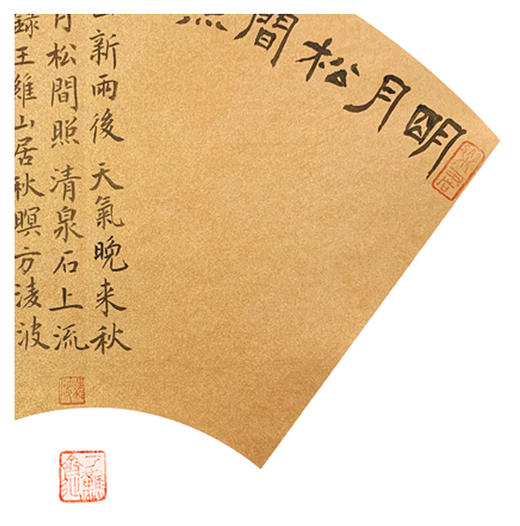 明月松間照
山新雨後天氣晚来秋
月松間照清泉石上流
録王維山居秋暝方淩波